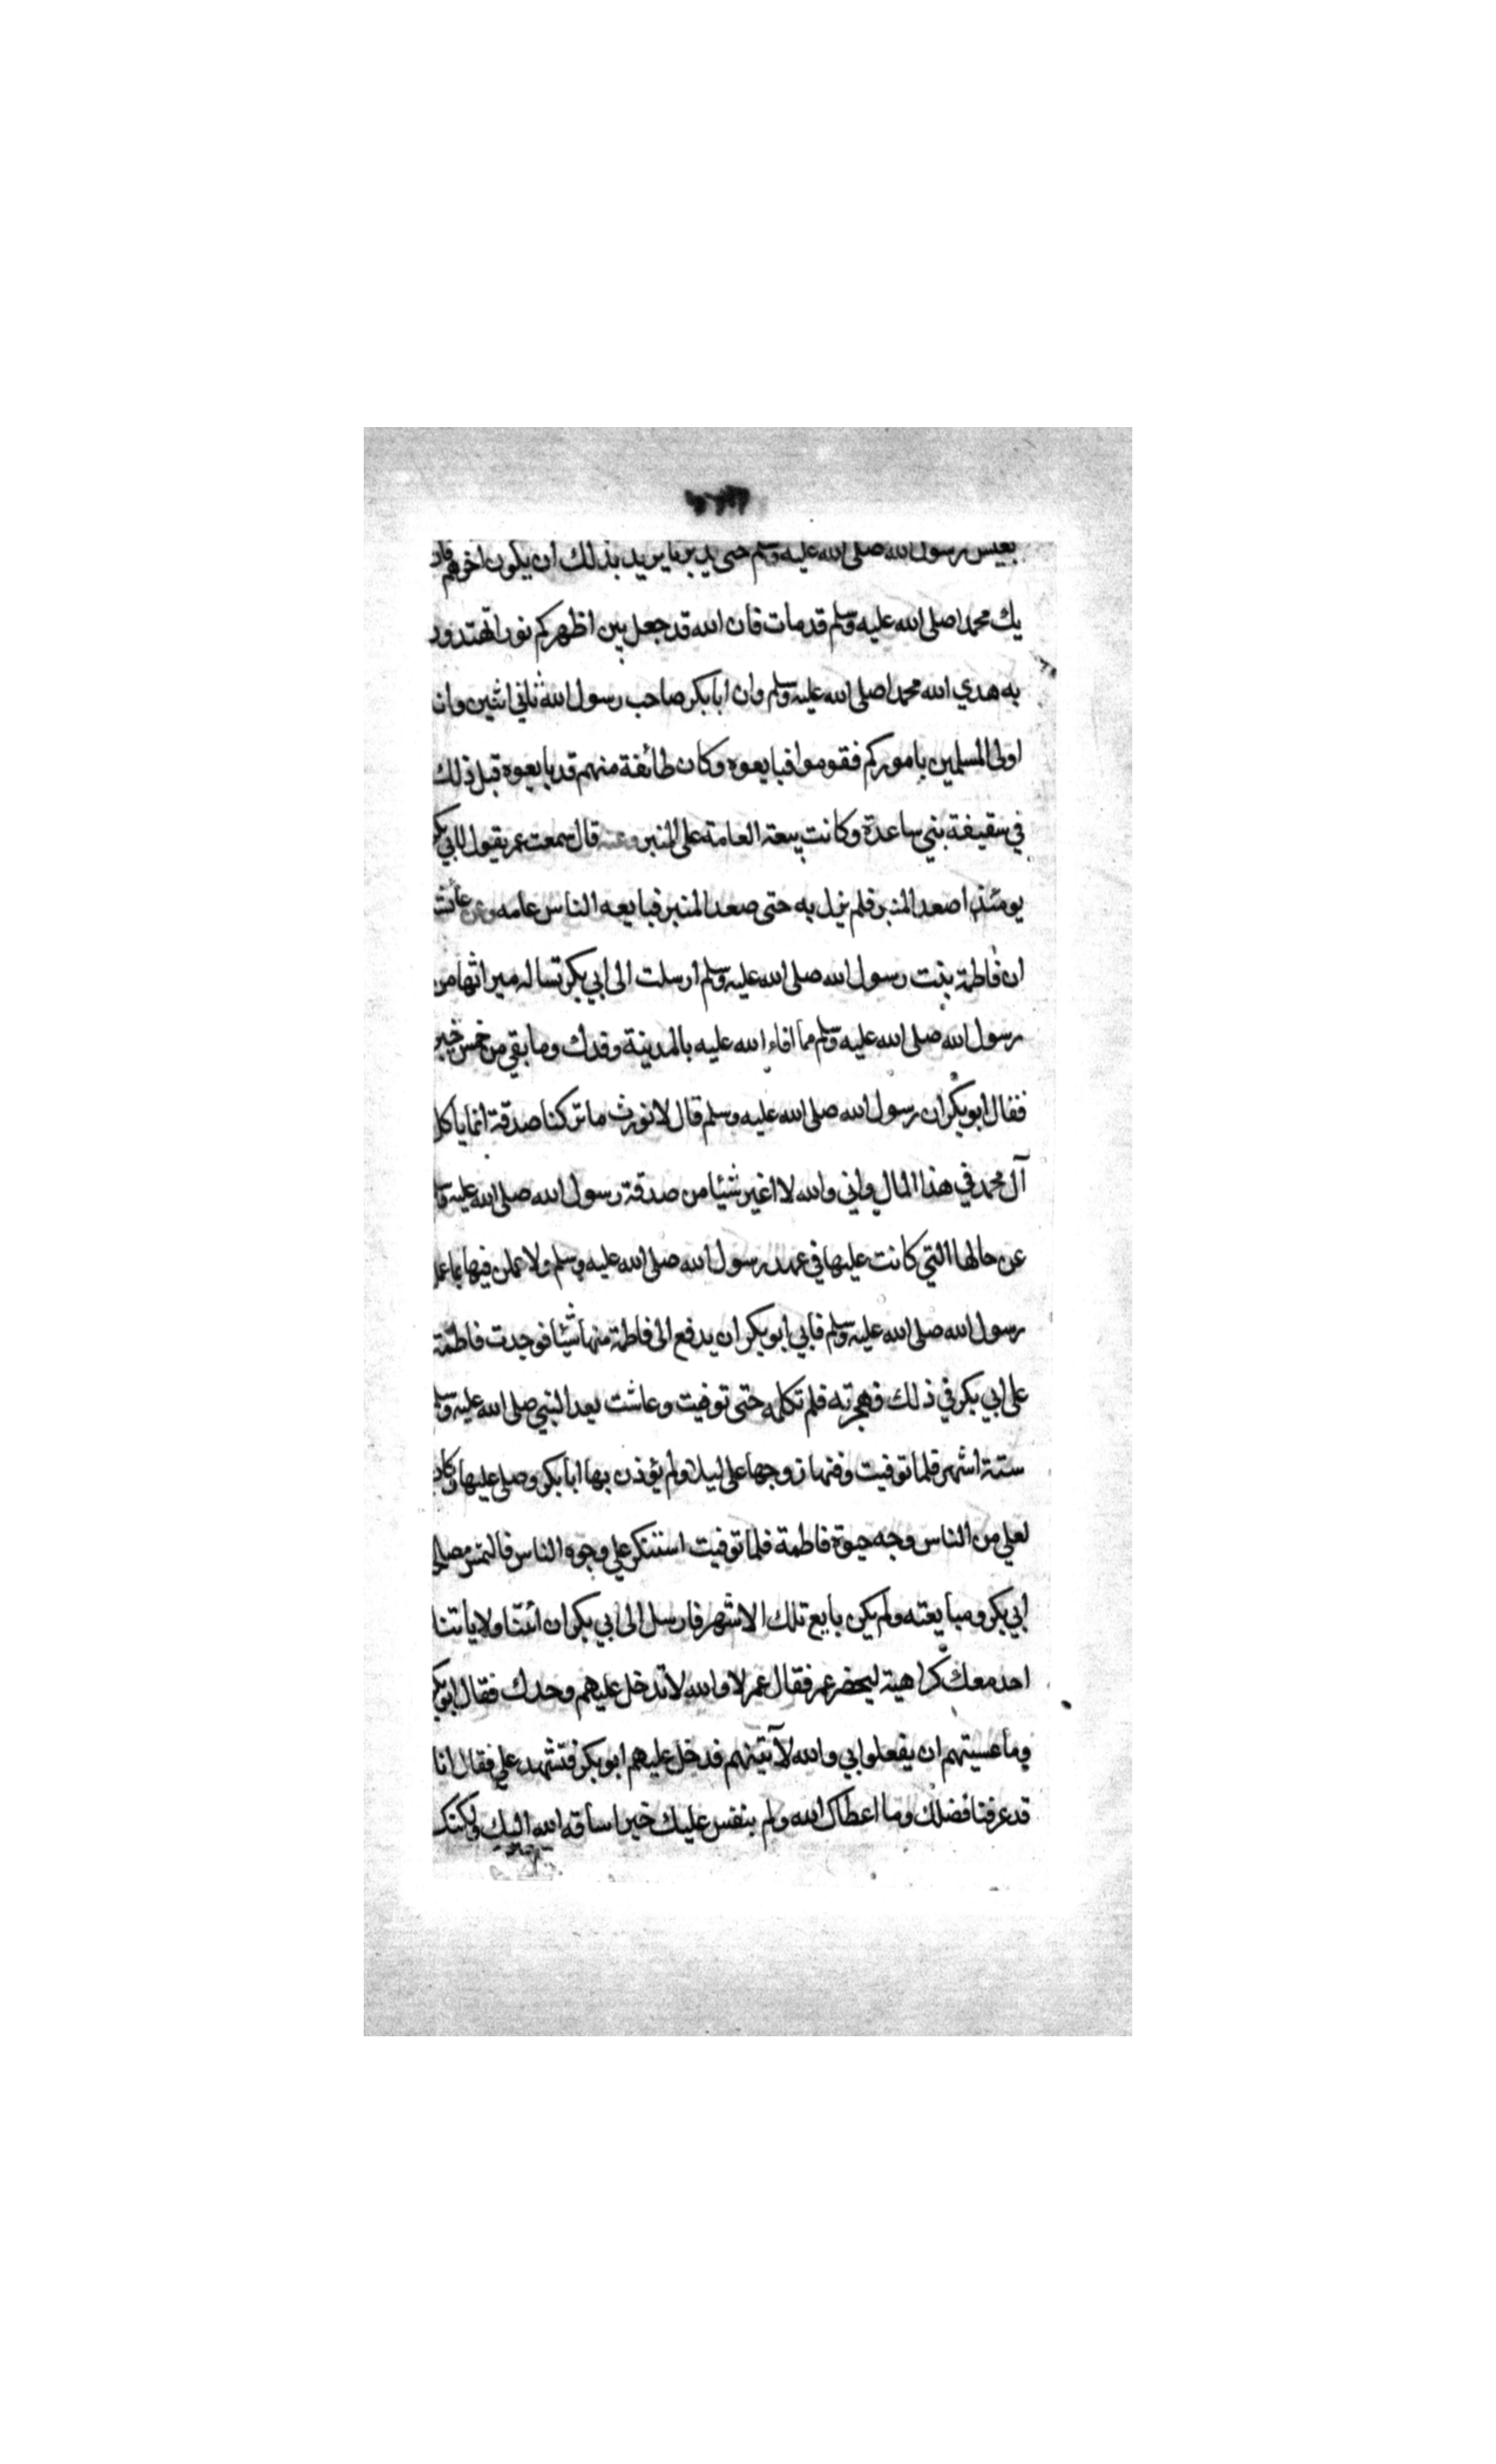 يعيش رسول الله صلى الله عليه وسلم حتى يدبرنا يريد بذلك ان يكون اخرهم فان
يك محمدا صلى الله عليه وسلم قد مات فان الله قد جعل بين اظهركم نورا تهتدون
به هدي الله محمدا صلى الله عليه وسلم وان ابا بكر صاحب رسول الله ثاني اثنين وانه
اولى المسلمين باموركم فقوموا فبايعوه وكان طائفة منهم قد بايعوه قبل ذلك
في سقيفة بني ساعدة وكانت بيعة العامة على المنبر وعنه قال سمعت عمر يقول لابي بكر
يومئذ اصعد المنبر فلم يزل به حتى صعد المنبر فبايعه الناس عامه وعن عائشة
ان فاطمة بنت رسول الله صلى الله عليه وسلم ارسلت الى ابي بكر تساله ميراثها من
رسول الله صلى الله عليه وسلم مما افاء الله عليه بالمدينة وفدك وما بقي من خمس خيبر
فقال ابو بكر ان رسول الله صلى الله عليه وسلم قال لا نورث ما تركنا صدقة انما ياكل
آل محمد في هذا المال واني والله لا اغير شيئا من صدقة رسول الله صلى الله عليه وسلم
عن حالها التي كانت عليها في عهد رسول الله صلى الله عليه وسلم ولا عملن فيها بما عمل
رسول الله صلى الله عليه وسلم فابي ابو بكر ان يدفع الى فاطمة منها شيئا فوجدت فاطمة
على ابي بكر في ذلك فهجرته فلم تكلمه حتى توفيت وعاشت بعد النبي صلى الله عليه وسلم
ستة اشهر فلما توفيت دفنها زوجها علي ليلا ولم يؤذن بها ابا بكر وصلى عليها وكان
لعلي من الناس وجه حيوة فاطمة فلما توفيت استنكر علي وجوه الناس فالتمس مصالحة
ابي بكر ومبايعته ولم يكن بايع تلك الاشهر فارسل الى ابي بكر ان ائتنا ولا ياتنا
احد معك كراهية ليحضر عمر فقال عمر لا والله لا تدخل عليهم وحدك فقال ابو بكر
وما عسيتهم ان يفعلوا بي والله لآتينهم فدخل عليهم ابو بكر فتشهد علي فقال انا
قد عرفنا فضلك وما اعطاك الله ولم ينفس عليك خيرا ساقه الله اليك ولكنك